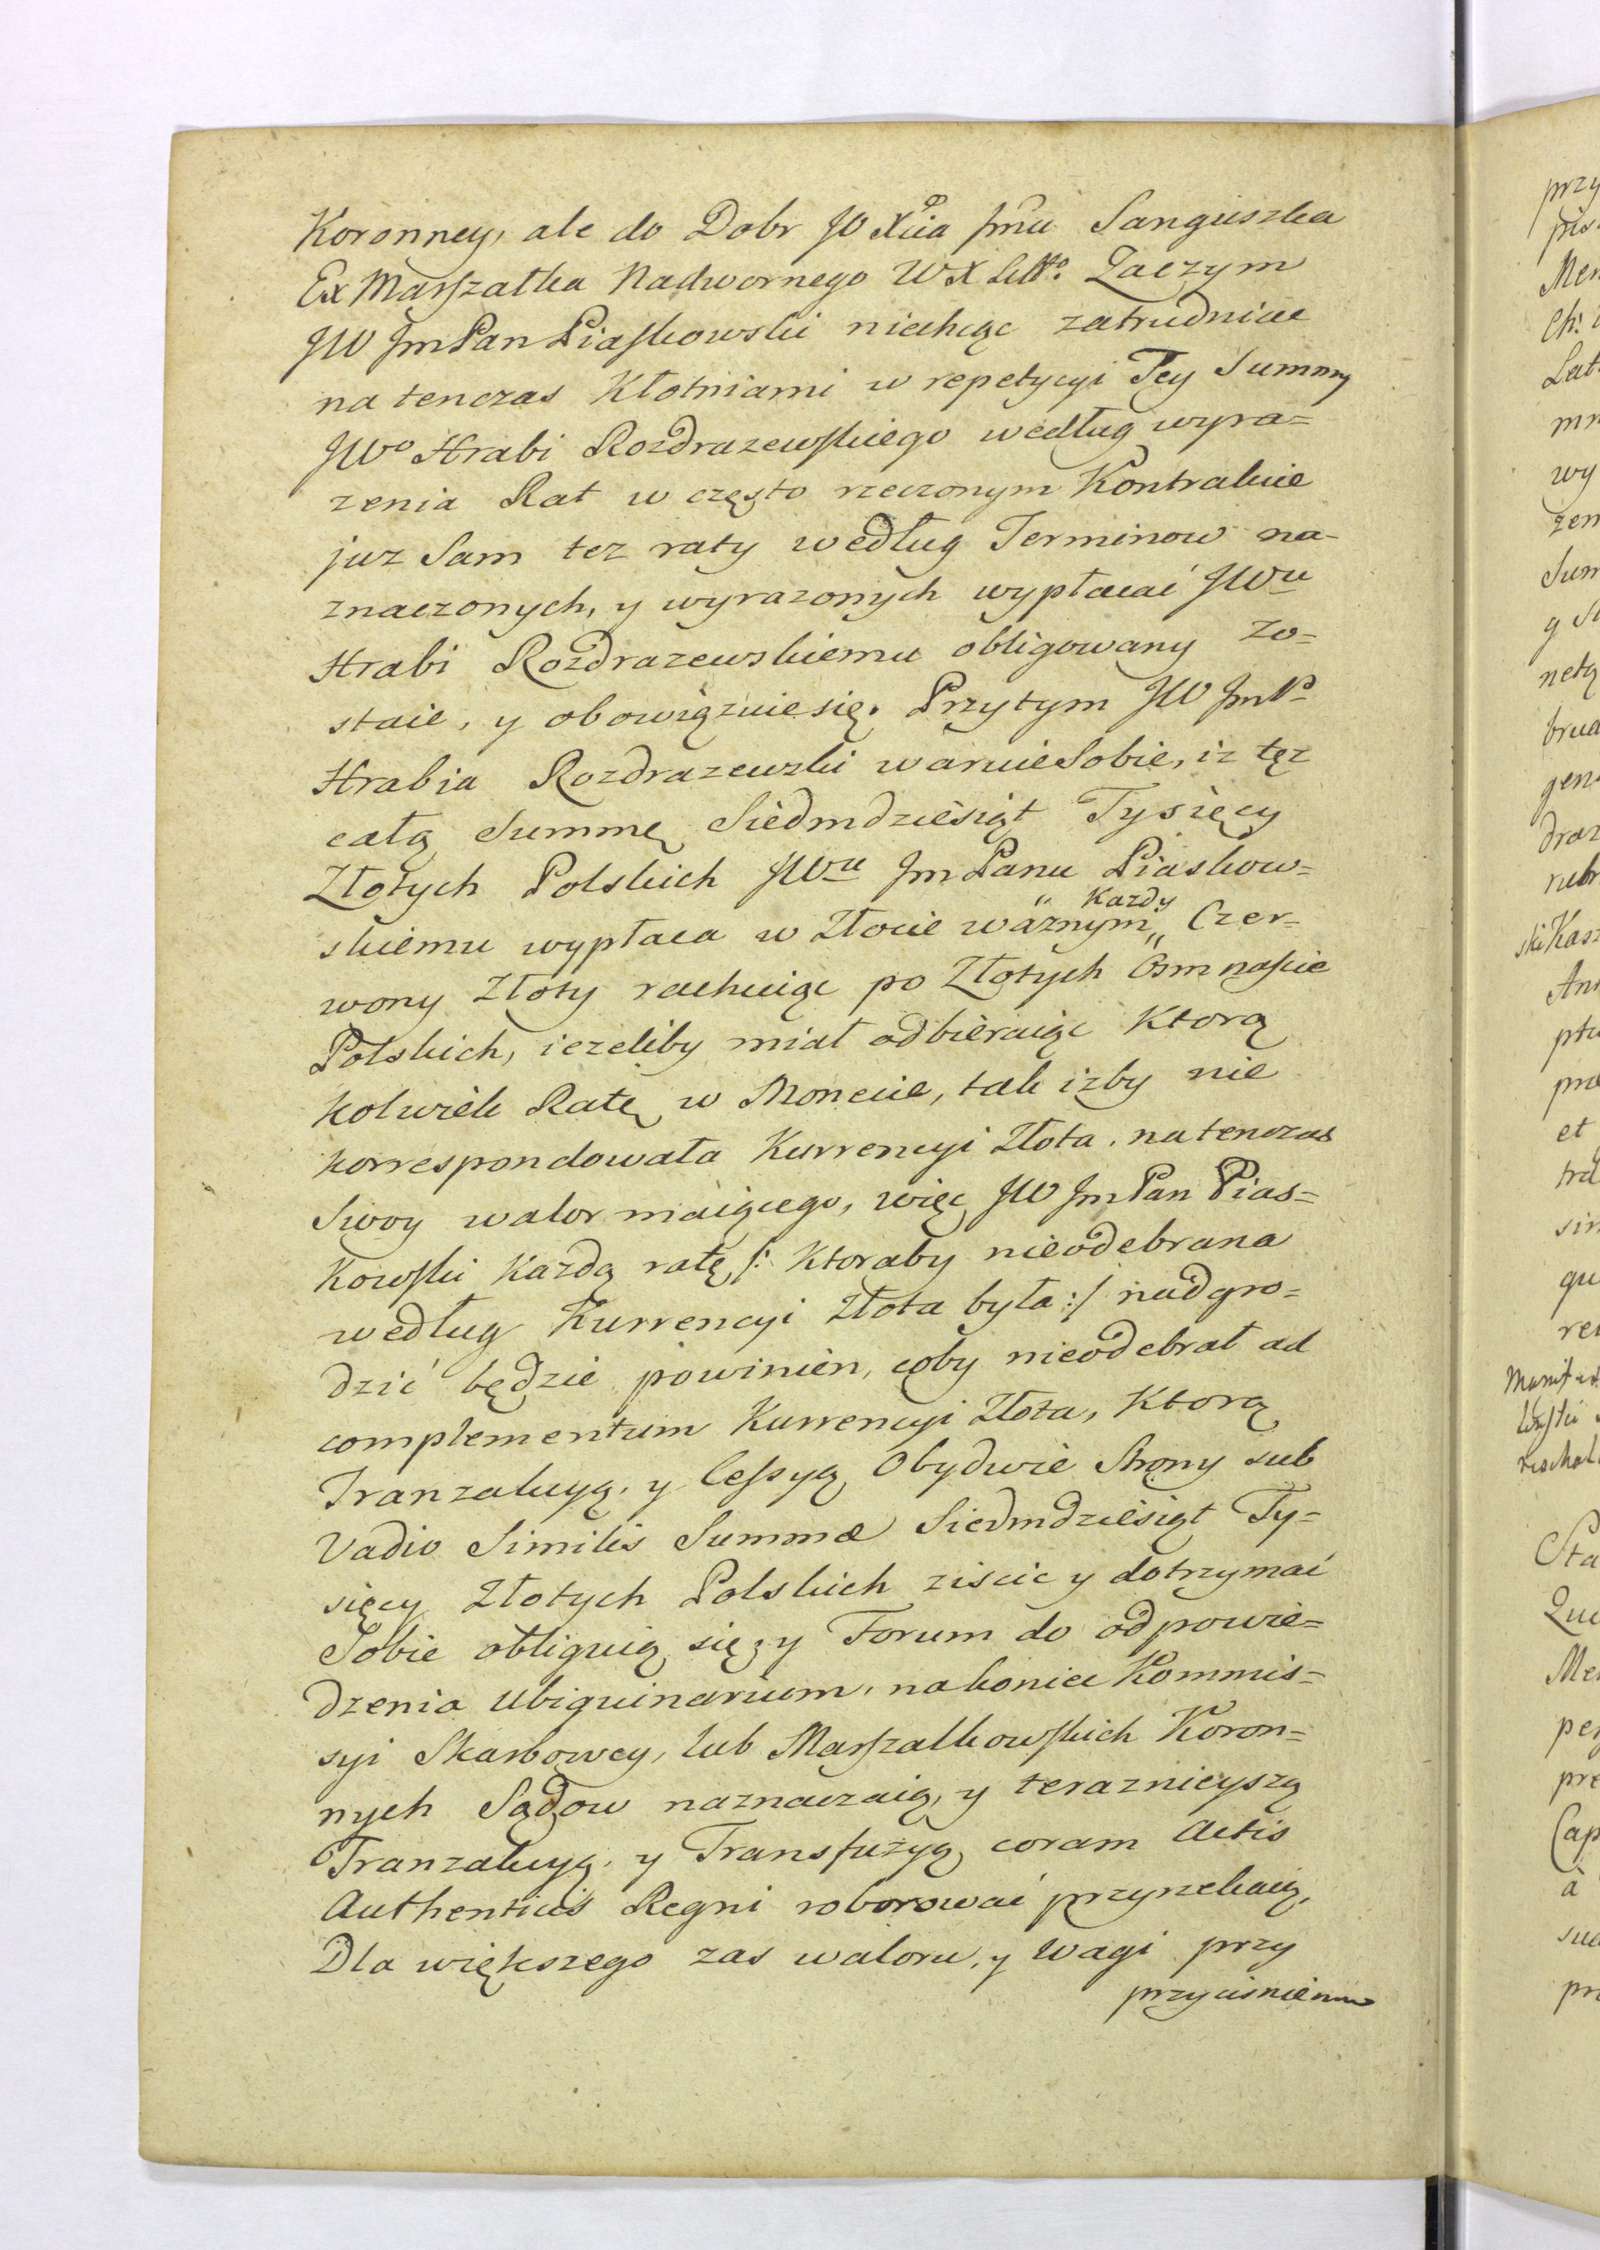 Koronney, ale do Dobr JO Xcia Jmci Sanguszka
Ex Marszałka Nadwornego W X Litt⁰. Zaczym
JW Jm Pan Piaskowski niechcąc zatrudniac
na tenczas Kłotniami w repetycyi Tey Summy
JWº Hrabi Rozdrazewskiego według wyra=
zenia Rat w często rzeczonym Kontrakcie
juz Sam tez raty według Terminow na-
znaczonych, y wyrazonych wypłacać JWu
Hrabi Rozdrazewskiemu obligowany zo=
staie, y obowiązuie się. Przytym JW JmP
Hrabia Rozdrazewski waruie Sobie, iz tęz
całą Summę Siedmdziesiąt Tysięcy
Złotych Polskich JWu Jm Panu Piaskow=
skiemu wypłaca w Złocie ważnym „Kazdy„ Czer-
wony Złoty rachuiąc po Złotych Osmnascie
Polskich, iezeliby miał odbieraiąc Ktorą
kolwiek Ratę w Monecie, tak izby nie
korrespondowała Kurrencyi Złota, natenczas
Swoy walor maiącego, więc JW Jm Pan Pias=
Kowski Kazdą ratę /: Ktoraby nieodebrana
według Kurrencyi Złota była :/ nadgro=
dzić będzie powinien, coby nieodebrał ad
complementum Kurrencyi Złota, Ktorą
Tranzakcyą, y Cessyą Obydwie Strony sub
Vadio Similis Summæ Siedmdziesiąt Ty=
sięcy Złotych Polskich ziscic y dotrzymać
Sobie obliguią się, y Forum do odpowie=
dzenia Ubiquinarium, nakoniec Kommis=
syi Skarbowey, lub Marszałkowskich Koron=
nych Sądow naznaczaią, y teraznieyszą
Tranzakcyą, y Transfuzyą coram Actis
Authenticis Regni roborować przyrzekaią,
Dla większego zas waloru, y Wagi przy
przycisnieniu